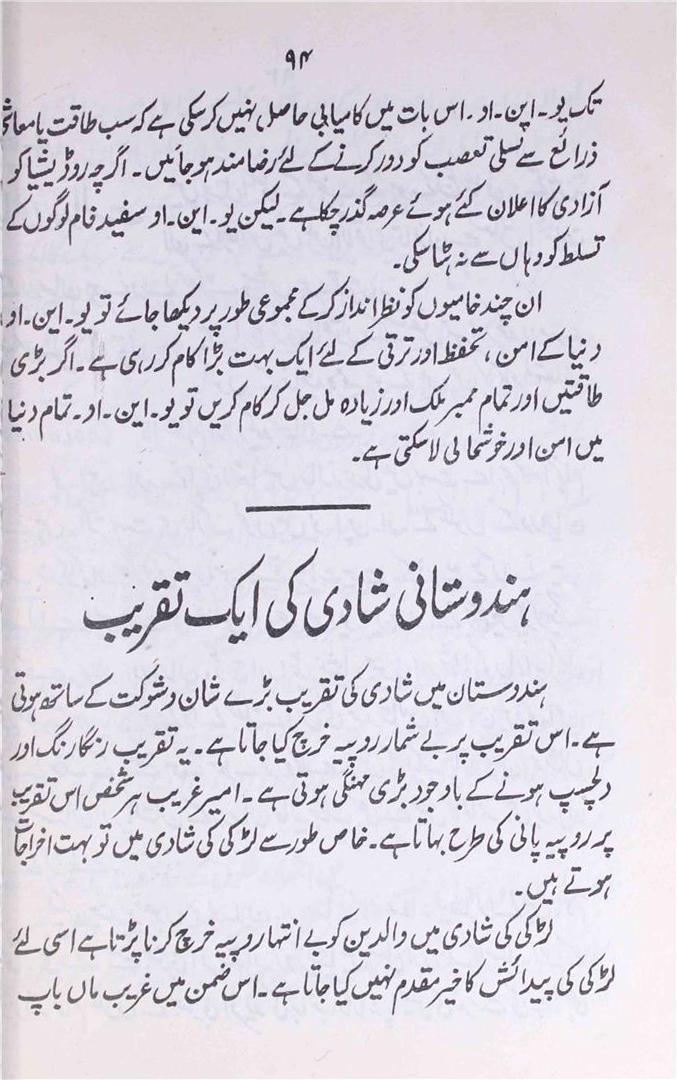 ۹۴
تک یو۔ این۔ او۔ اس بات میں کامیابی حاصل نہیں کر سکی ہے کہ سب طاقت یا معاشی
ذرائع سے نسلی تعصب کو دور کرنے کے لئے رضامند ہو جائیں۔ اگرچہ روڈیشیا کو
آزادی کا اعلان کئے ہوئے عرصہ گذر چکا ہے۔ لیکن یو۔ این۔ او سفید فام لوگوں کے
تسلط کو وہاں سے نہ ہٹا سکی۔
ان چند خامیوں کو نظر انداز کر کے مجموعی طور پر دیکھا جائے تو یو۔ این۔ او،
دنیا کے امن، تحفظ اور ترقی کے لئے ایک بہت بڑا کام کر رہی ہے۔ اگر بڑی
طاقتیں اور تمام ممبر ملک اور زیادہ مل جل کر کام کریں تو یو۔ این۔ او۔ تمام دنیا
میں امن اور خوشحالی لا سکتی ہے۔
ہندوستانی شادی کی ایک تقریب
ہندوستان میں شادی کی تقریب بڑے شان و شوکت کے ساتھ ہوتی
ہے۔ اس تقریب پر بے شمار روپیہ خرچ کیا جاتا ہے۔ یہ تقریب رنگا رنگ اور
دلچسپ ہونے کے باوجود بڑی مہنگی ہوتی ہے۔ امیر غریب ہر شخص اس تقریب
پر روپیہ پانی کی طرح بہاتا ہے۔ خاص طور سے لڑکی کی شادی میں تو بہت اخراجات
ہوتے ہیں۔
لڑکی کی شادی میں والدین کو بے انتہا روپیہ خرچ کرنا پڑتا ہے اسی لئے
لڑکی کی پیدائش کا خیر مقدم نہیں کیا جاتا ہے۔ اس ضمن میں غریب ماں باپ